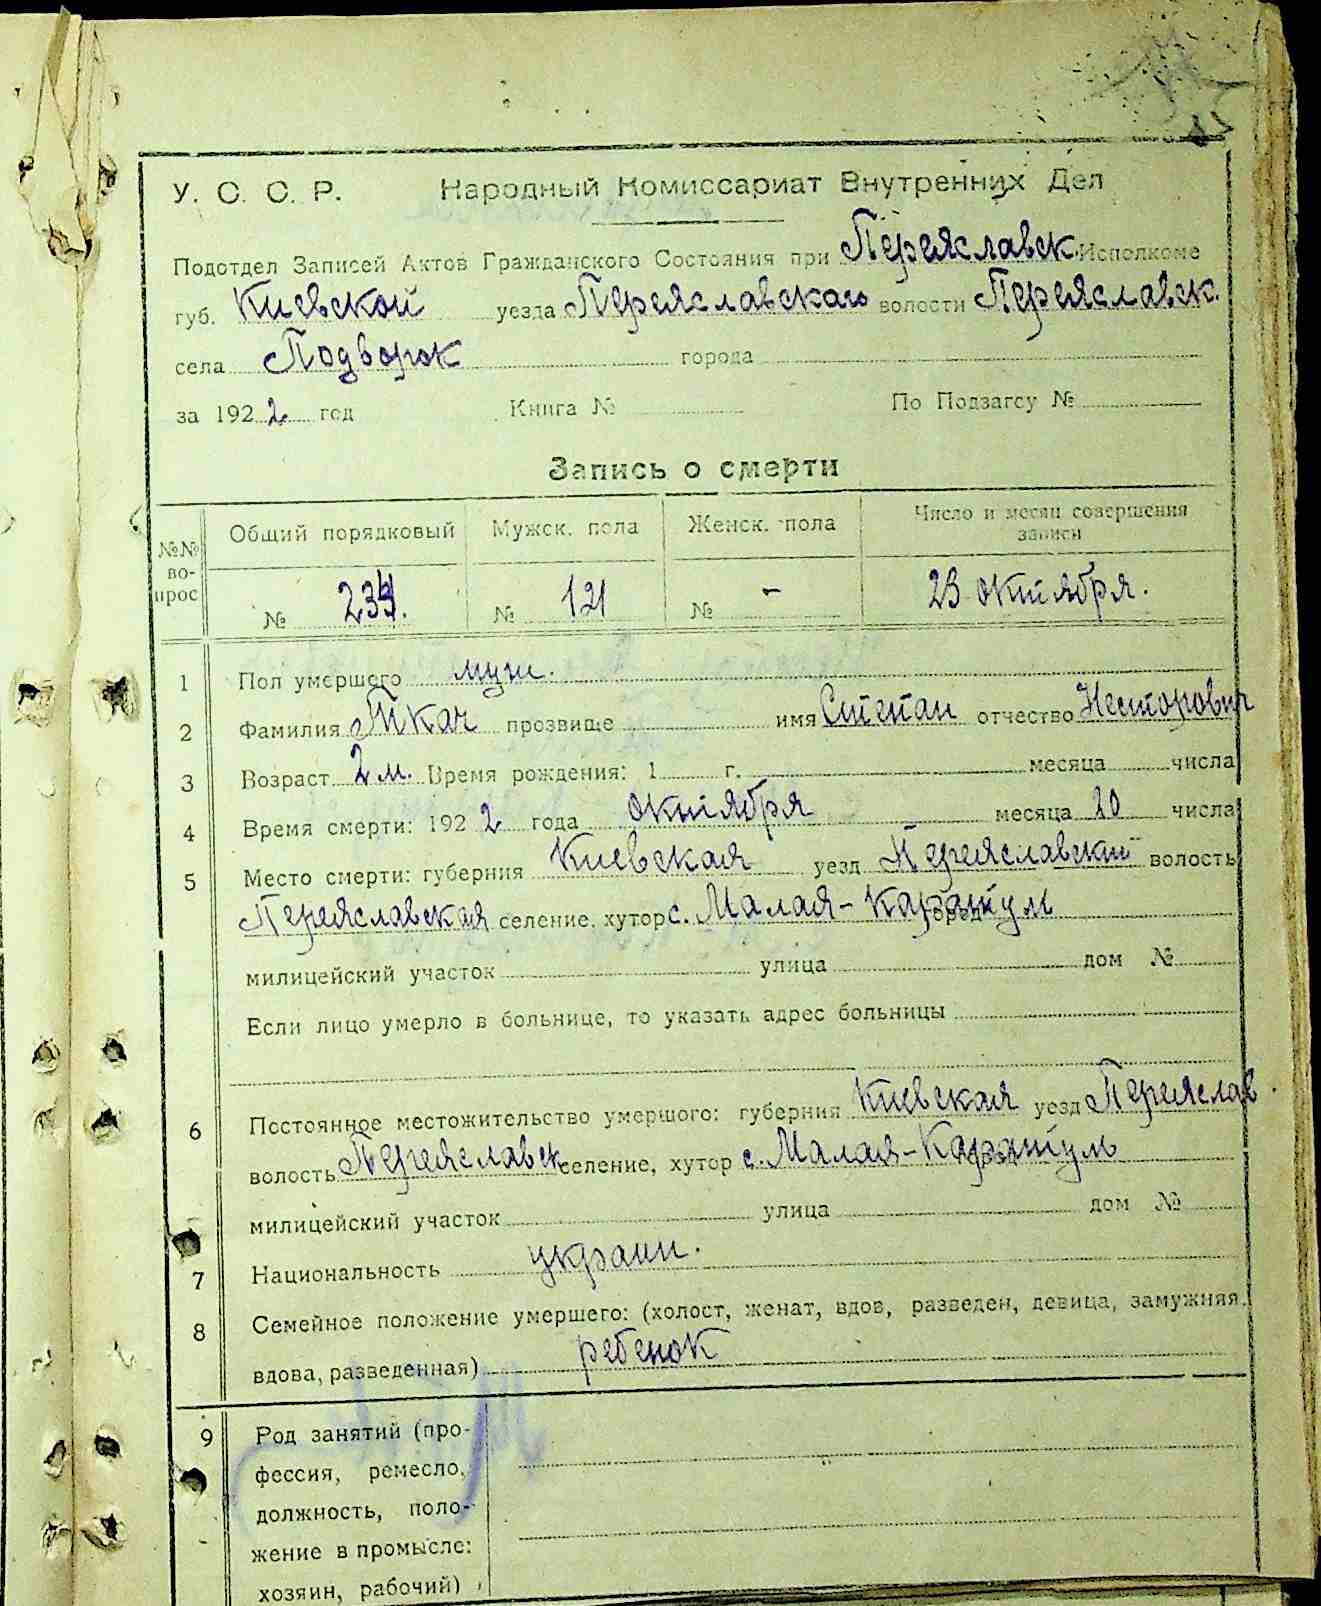 У. С. С. Р. Народный Комиссариат Внутренних Дел
Подотдел Записей Актов Гражданского Состояния при Переяславск. Исполкоме
губ. Киевской уезда Переяславскаго волости Переяславск.
села Подворок города
за 1922 год Книга № По Подзагсу №
Запись о смерти
№№ вопрос Общий порядковый Мужск. пола Женск. пола Число и месяц совершения записи
№ 234. № 121 № - 23 октября.
1 Пол умершего муж.
2 Фамилия Ткач прозвище имя Степан отчество Несторович
3 Возраст 2 м. Время рождения: 1 г. месяца числа
4 Время смерти: 1922 года октября месяца 20 числа
5 Место смерти: губерния Киевская уезд Переяславский волость
Переяславская селение, хутор с. Малая-Каратуль город
милицейский участок улица дом №
Если лицо умерло в больнице, то указать адрес больницы
6 Постоянное местожительство умершого: губерния Киевская уезд Переяслав.
волость Переяславск селение, хутор с. Малая-Каратуль город
милицейский участок улица дом №
7 Национальность украин.
8 Семейное положение умершего: (холост, женат, вдов, разведен, девица, замужняя,
вдова, разведенная) ребенок
9 Род занятий (про-
фессия, ремесло,
должность, поло-
жение в промысле:
хозяин, рабочий)